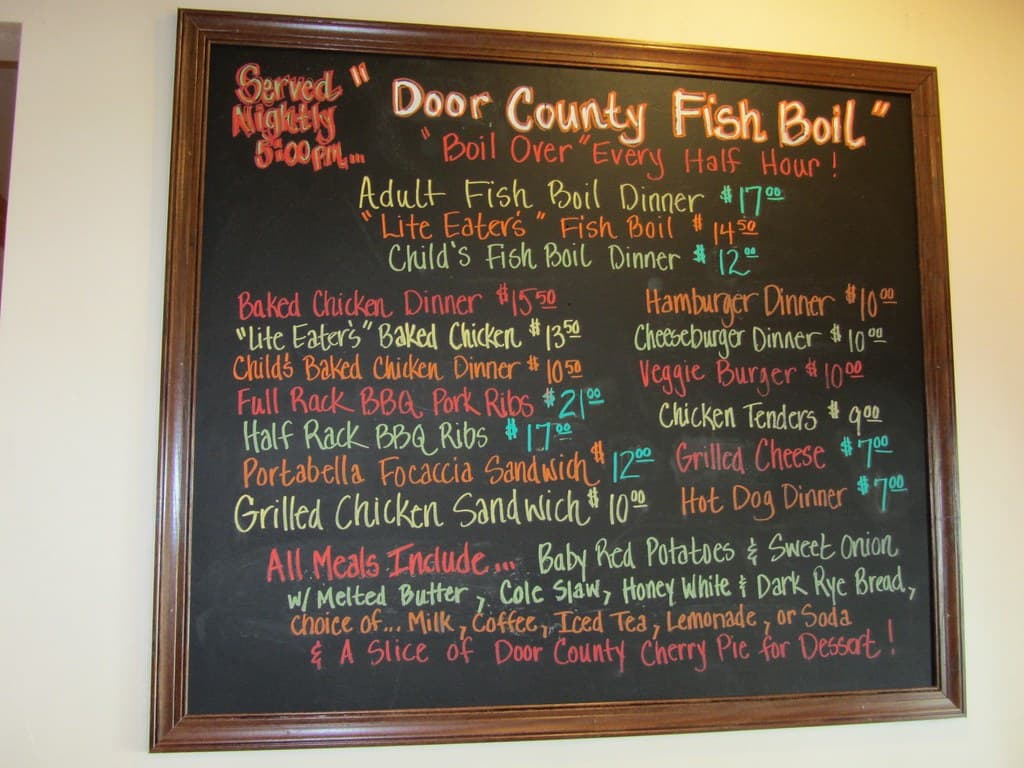 Served
Nightly
5:00 pm...
"Door County Fish Boil"
"Boil Over" Every Half Hour!
Adult Fish Boil Dinner $17.00
"Lite Eater's" Fish Boil $14.50
Child's Fish Boil Dinner $12.00
Baked Chicken Dinner $15.50
"Lite Eater's" Baked Chicken $13.50
Child's Baked Chicken Dinner $10.50
Full Rack BBQ Pork Ribs $21.00
Half Rack BBQ Ribs $17.00
Portabella Focaccia Sandwich $12.00
Grilled Chicken Sandwich $10.00
Hamburger Dinner $10.00
Cheeseburger Dinner $10.00
Veggie Burger $10.00
Chicken Tenders $9.00
Grilled Cheese $7.00
Hot Dog Dinner $7.00
All Meals Include... Baby Red Potatoes & Sweet Onion
w/ Melted Butter, Cole Slaw, Honey White & Dark Rye Bread,
choice of... Milk, Coffee, Iced Tea, Lemonade, or Soda
& A Slice of Door County Cherry Pie for Dessert!